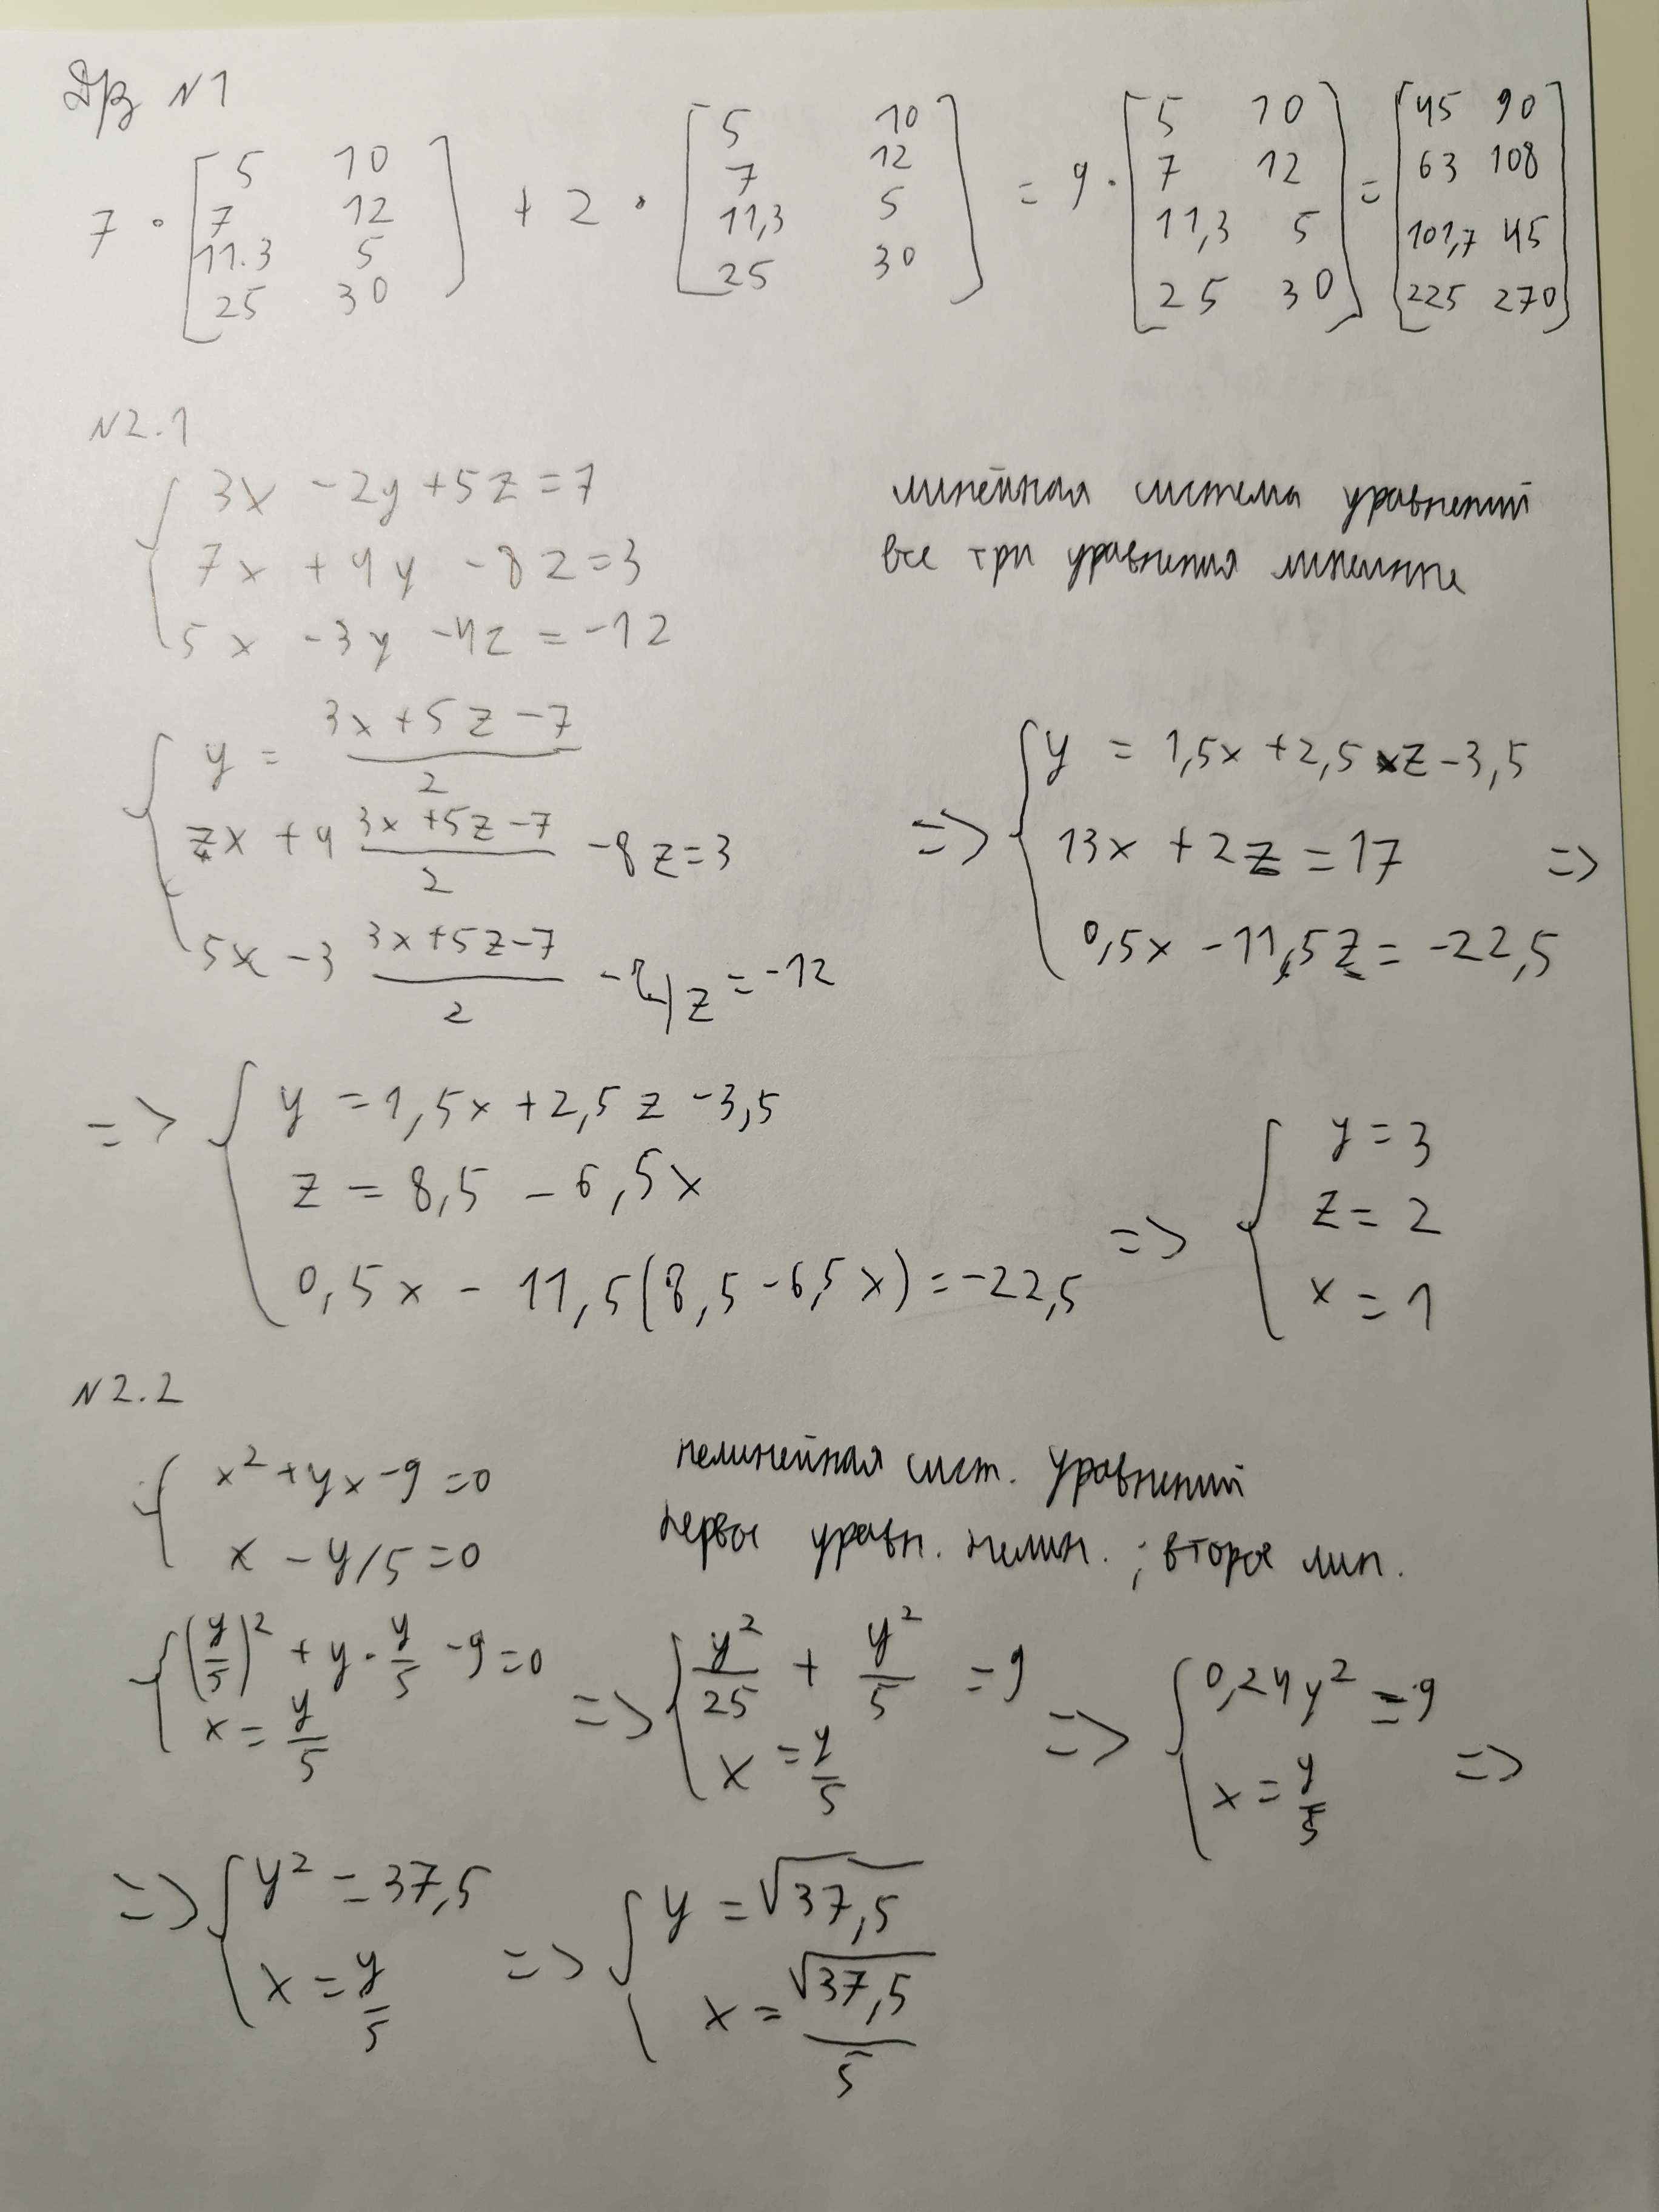 Дз N1
7 · [5 10; 7 12; 11.3 5; 25 30] + 2 · [5 10; 7 12; 11,3 5; 25 30] = 9 · [5 10; 7 12; 11,3 5; 25 30] = [45 90; 63 108; 101,7 45; 225 270]
N2.1
{ 3x - 2y + 5z = 7
7x + 4y - 8z = 3
5x - 3y - 4z = -12
линейная система уравнений
все три уравнения линейные
{ y = (3x + 5z - 7)/2
7x + 4 (3x + 5z - 7)/2 - 8z = 3
5x - 3 (3x + 5z - 7)/2 - 4z = -12
=> { y = 1,5x + 2,5z - 3,5
13x + 2z = 17 =>
0,5x - 11,5z = -22,5
=> { y = 1,5x + 2,5z - 3,5
z = 8,5 - 6,5x
0,5x - 11,5(8,5 - 6,5x) = -22,5
=> { y = 3
z = 2
x = 1
N2.2
{ x² + yx - 9 = 0
x - y/5 = 0
нелинейная сист. уравнений
первое уравн. нелин. ; второе лин.
{ (y/5)² + y · y/5 - 9 = 0
x = y/5
=> { y²/25 + y²/5 = 9
x = y/5
=> { 0,24y² = 9
x = y/5 =>
=> { y² = 37,5
x = y/5
=> { y = √37,5
x = √37,5/5